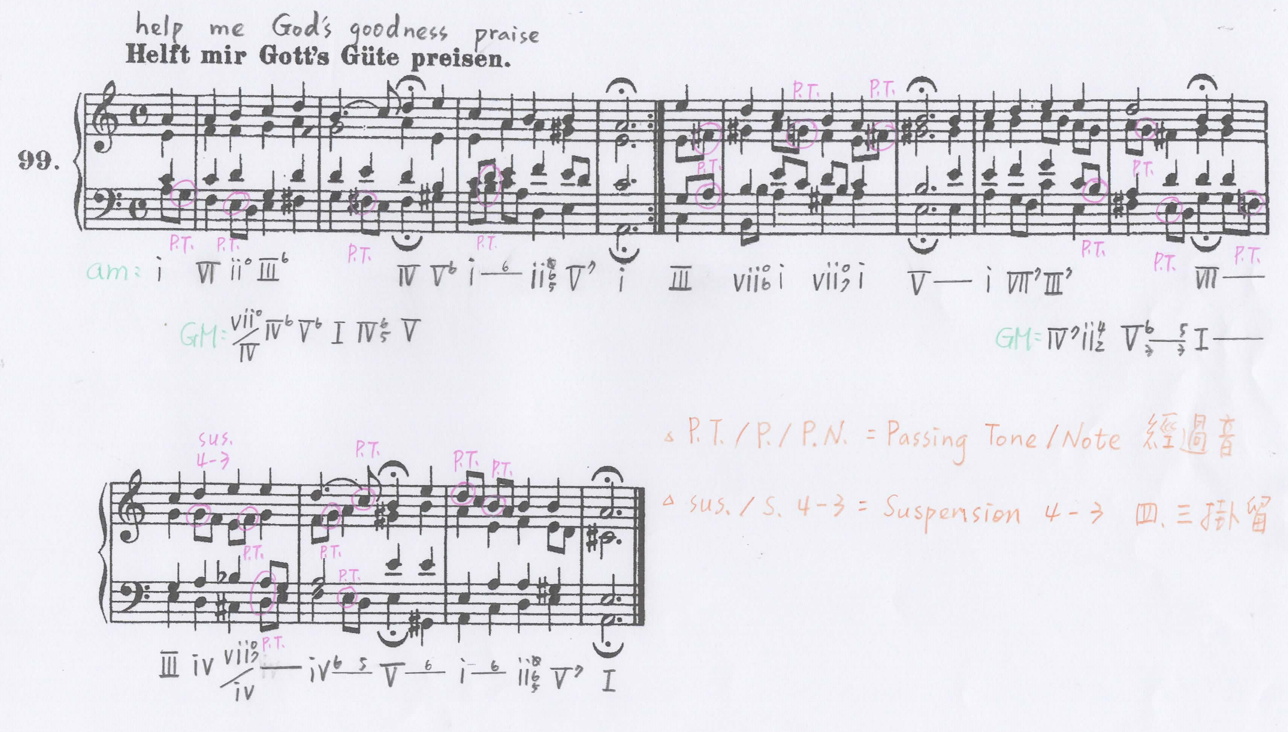 help me God's goodness praise
Helft mir Gott's Güte preisen.
99.
P.T. P.T.
P.T. P.T.
P.T. P.T. P.T. P.T. P.T. P.T. P.T.
am: i VI ii° III⁶ IV V⁶ i—⁶ ii⁰⁶₅ V⁷ i III vii°6 i vii°7 i V— i VII⁷ III⁷ VII—
GM: vii°/IV IV⁶ V⁶ I IV⁶₅ V GM: IV⁷ ii⁴₂ V⁶₃—⁵₃ I—
sus.
4-3
P.T. P.T. P.T.
P.T. P.T. P.T.
P.T.
III iv vii°7/iv — iv⁶—⁵ V—⁶ i—⁶ ii⁰⁶₅ V⁷ I
△ P.T. / P. / P.N. = Passing Tone / Note 經過音
△ sus. / S. 4-3 = Suspension 4-3 四、三掛留